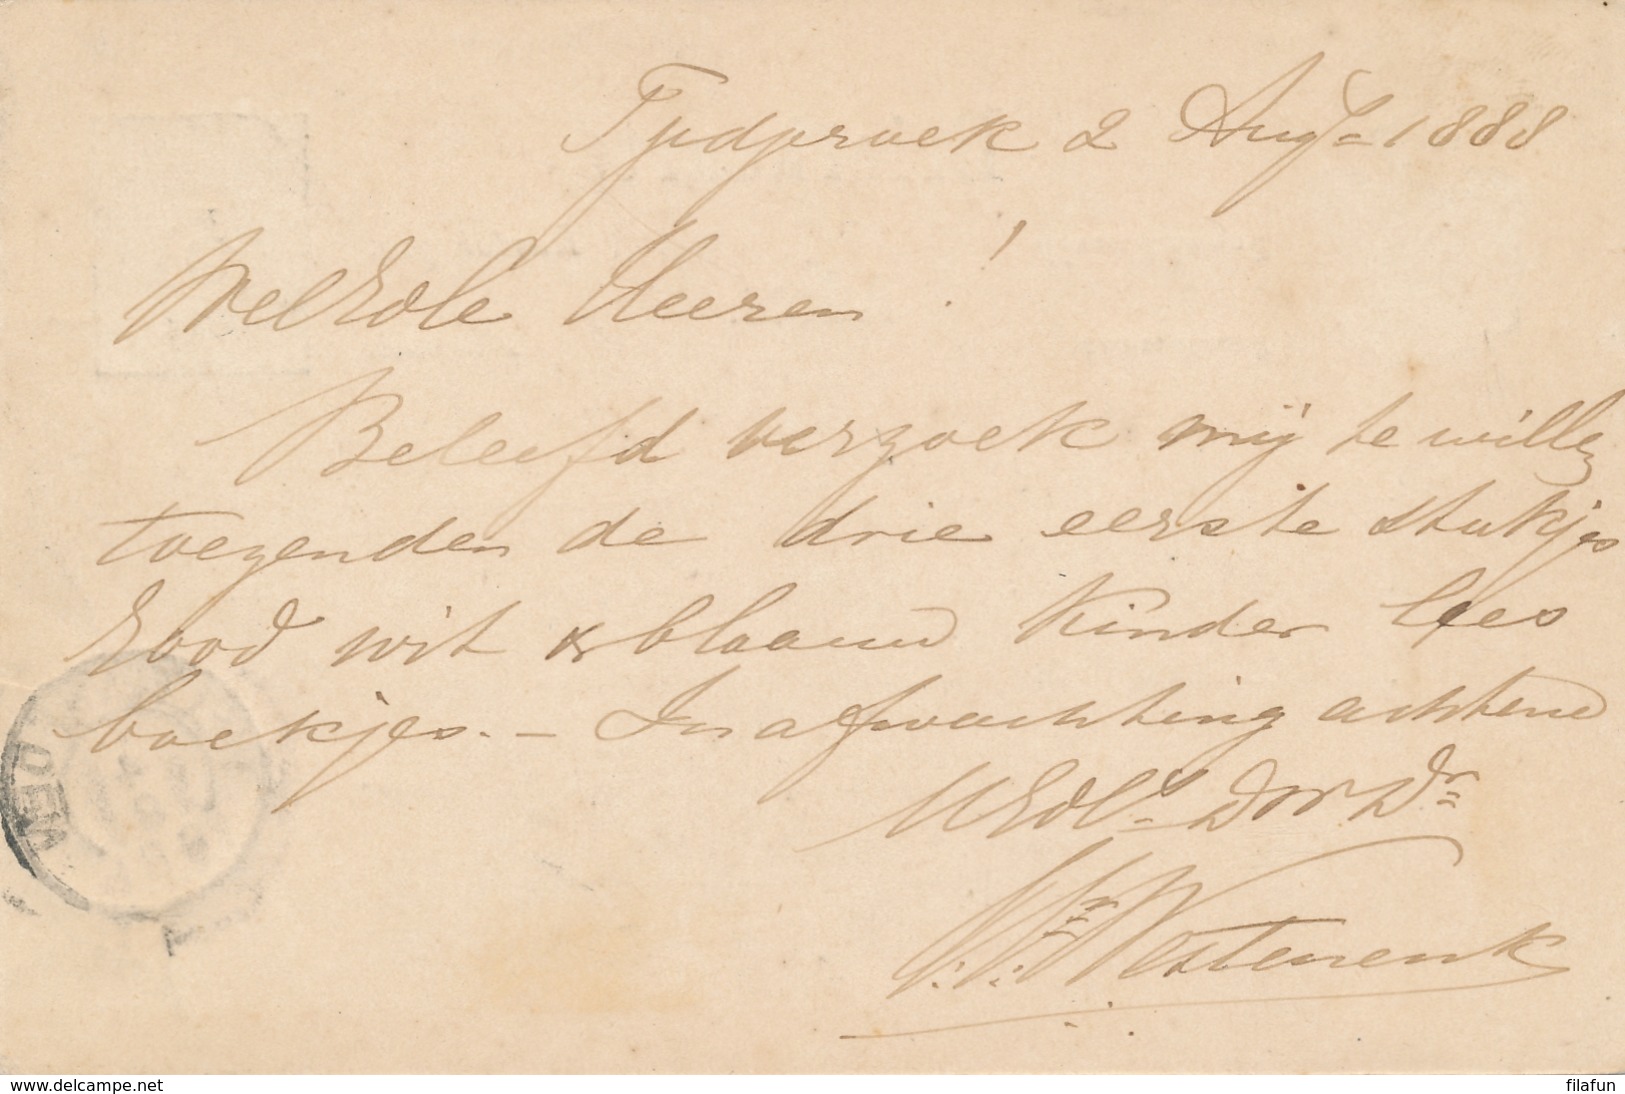 Tjidjeroek 2 Aug. 1888
WelEdele Heeren!
Beleefd verzoek mij te willen
toezenden de drie eerste stukjes
Rood wit & blaauw Kinder lees
boekjes. – In afwachting achtend
UEdl. Dw Dr
Westenenk
DEN
www.delcampe.net
filafun